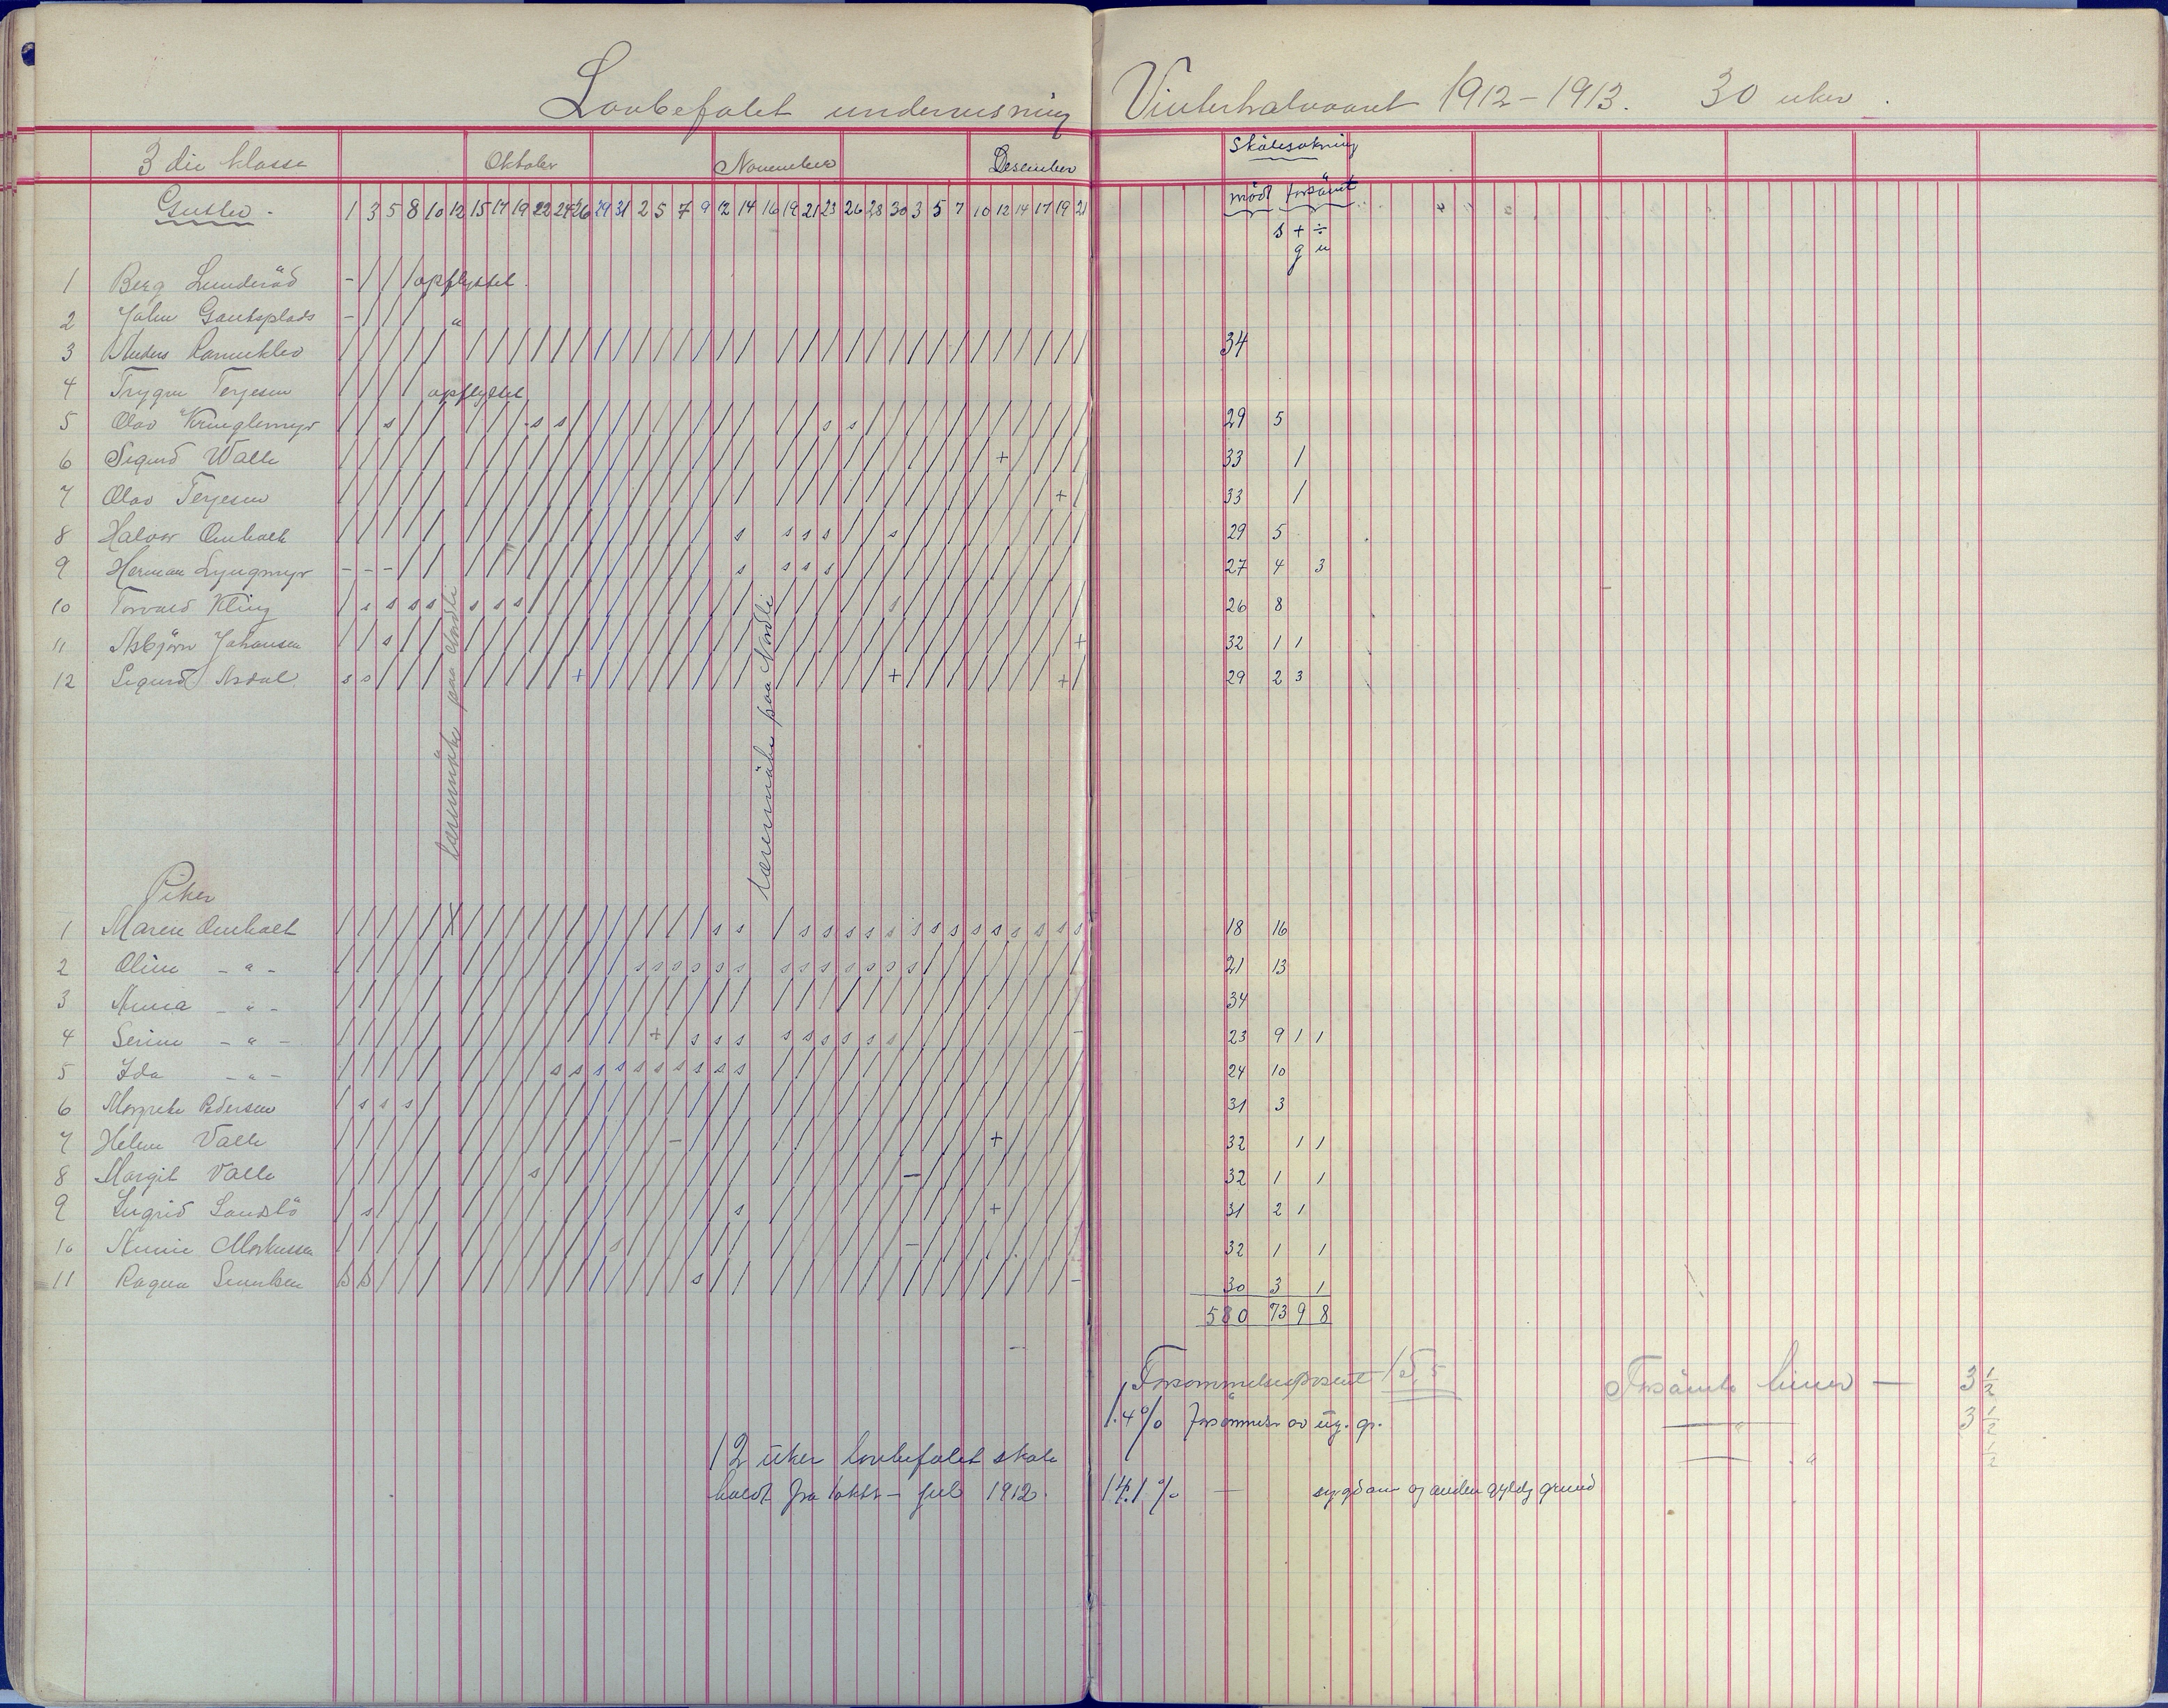 Lovbefalet undervisning Vinterhalvaaret 1912-1913. 30 uker.
3die klasse Oktober November Desember Skolesøkning
Gutter. 1 3 5 8 10 12 15 17 19 22 24 26 29 31 2 5 7 9 12 14 16 19 21 23 26 28 30 3 5 7 10 12 14 17 19 21 mödt forsömt
s + ÷
g u
1 Berg Lunderöd - / / / opflyttet.
2 John Gautsplads - / / / "
3 Anders Ramnklev 34
4 Trygve Terjesen / / / / opflyttet
5 Olav Kringlemyr 29 5
6 Sigurd Walle 33 1
7 Olav Terjesen 33 1
8 Halvor Omholt 29 5
9 Herman Lyngmyr 27 4 3
10 Torvald Kling 26 8
11 Asbjörn Johansen 32 1 1
12 Sigurd Asdal 29 2 3
lærermöte paa Nordli
lærermöte paa Nordli
Piker
1 Maren Omholt 18 16
2 Oline - " - 21 13
3 Anna - " - 34
4 Serine - " - 23 9 1 1
5 Ida - " - 24 10
6 Margrete Pedersen 31 3
7 Helene Valle 32 1 1
8 Margit Valle 32 1 1
9 Ingrid Sandslö 31 2 1
10 Annie Markussen 32 1 1
11 Ragna 30 3 1
580 73 9 8
Forsømmelsesprosent 15,5 Forsömte timer — 3 1/2
1.4% forsömmelser av ug. gr. — " 3 1/2
— " 1/2
12 uker lovbefalet skole
holdt fra 1 oktbr - jul 1912.
14.1% — sygdom og anden gyldig grund